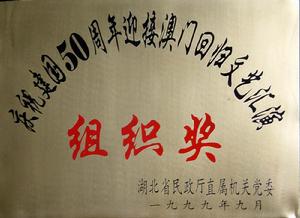 庆祝建国50周年迎接澳门回归文艺汇演
组织奖
湖北省民政厅直属机关党委
一九九九年九月